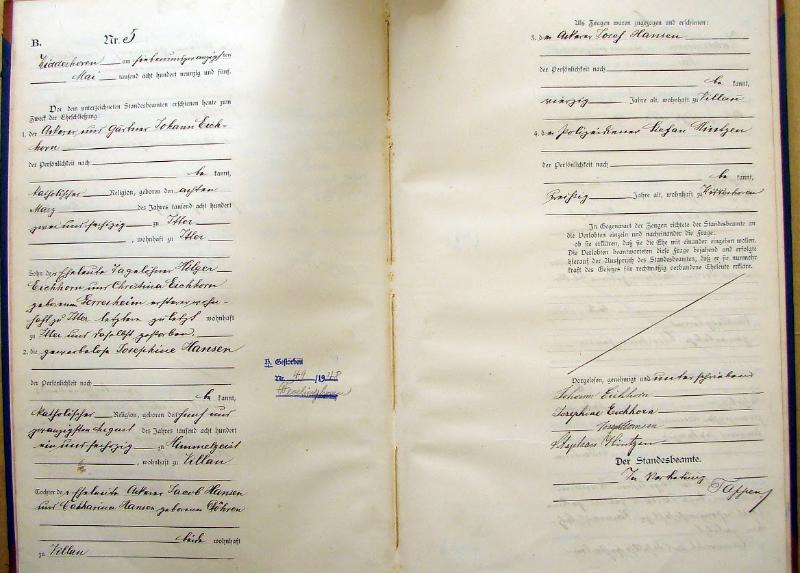 B.
Nr. 5
am siebenundzwanzigsten
Mai tausend acht hundert neunzig und fünf.
Vor dem unterzeichneten Standesbeamten erschienen heute zum
Zweck der Eheschließung:
1. der Ackerer und Gärtner Johann Eich-
horn
der Persönlichkeit nach
be kannt,
katholischer Religion, geboren den achten
März des Jahres tausend acht hundert
zwei und sechszig zu Itter
, wohnhaft zu Itter
Sohn der Eheleute Tagelöhner Holger
Eichhorn und Christina Eichhorn
geborenen ersterer wohn-
haft zu Itter letztere zuletzt wohnhaft
zu Itter und daselbst gestorben
2. die gewerbelose Josephine Hansen
der Persönlichkeit nach
be kannt,
katholischer Religion, geboren den fünf und
zwanzigsten August des Jahres tausend acht hundert
ein und sechszig zu Himmelgeist
, wohnhaft zu Villau
Tochter der Eheleute Ackerer Jacob Hansen
und Catharina Hansen geborenen
beide wohnhaft
zu Villau
H. Gestorben
Nr. 49 /1948
Als Zeugen waren zugezogen und erschienen:
3. der Ackerer Josef Hansen
der Persönlichkeit nach
be kannt,
vierzig Jahre alt, wohnhaft zu Villau
4. der Polizeidiener Stefan Hintzen
der Persönlichkeit nach
be kannt,
dreißig Jahre alt, wohnhaft zu
In Gegenwart der Zeugen richtete der Standesbeamte an
die Verlobten einzeln und nacheinander die Frage:
ob sie erklären, daß sie die Ehe mit einander eingehen wollen.
Die Verlobten beantworteten diese Frage bejahend und erfolgte
hierauf der Ausspruch des Standesbeamten, daß er sie nunmehr
kraft des Gesetzes für rechtmäßig verbundene Eheleute erkläre.
Vorgelesen, genehmigt und unterschrieben
Johann Eichhorn
Josephine Eichhorn
Josef Hansen
Stephan Hintzen
Der Standesbeamte.
In Vertretung
Tappen